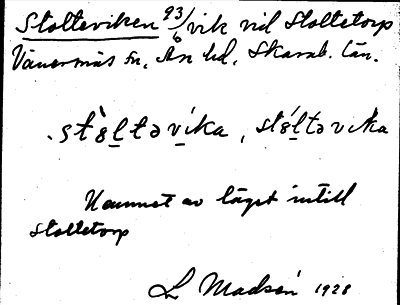 Stolteviken 93/6 vik vid Stoltetorp
Vänersnäs sn, Åse hd, Skarab. län.
stòltəvi̱ka, stóltəvika
Namnet av läget intill
Stoltetorp
L Madsén 1928